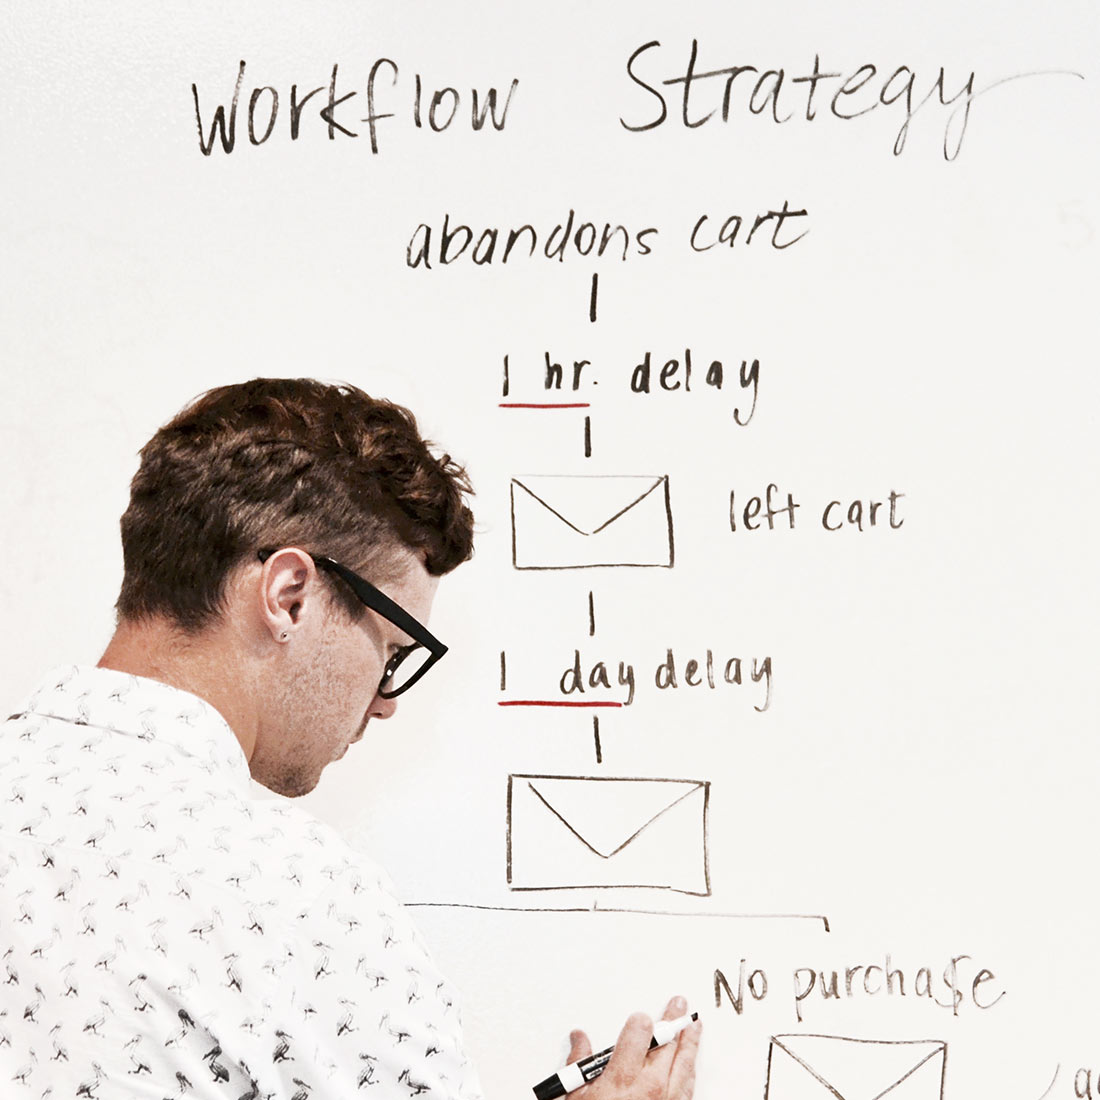 Workflow Strategy
abandons cart
1 hr. delay
left cart
1 day delay
No purcha$e